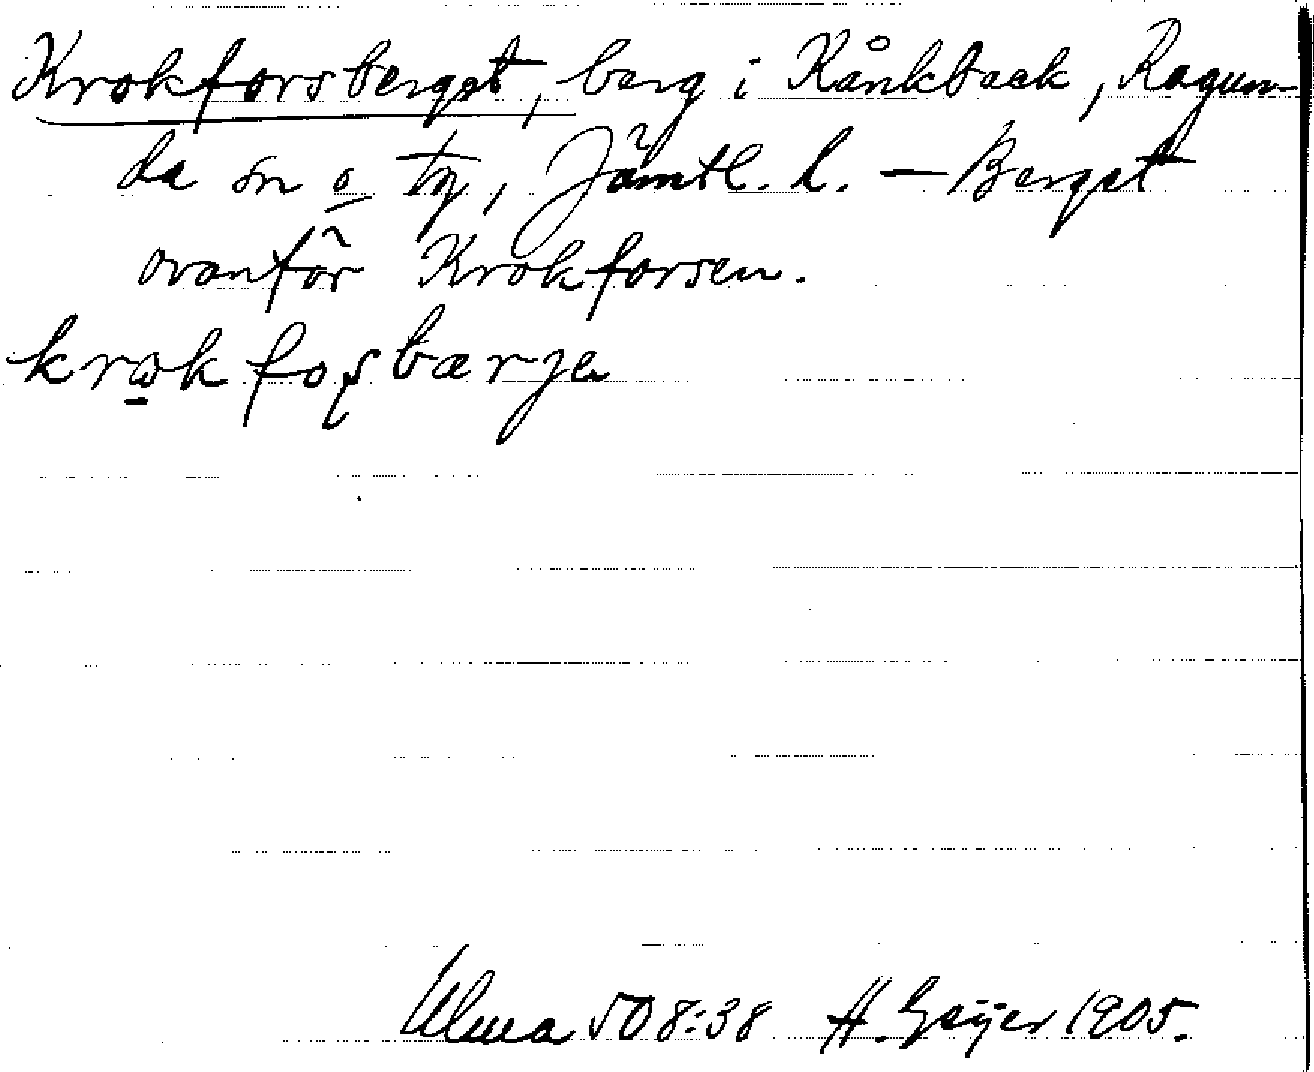 Krokforsberget, berg i Kånkback, Ragun-
da sn o tg, Jämtl. l. — Berget
ovanför Krokforsen.
krokfoʂbærjə
Ulma 508:38 H. Geijer 1905.